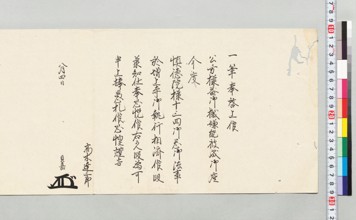 一筆奉啓上候
公方様益御機嫌能被成御座
今度
慎徳院様十三回御忌御法事
於増上寺御執行相済候段
承知仕奉恐悦候右之段為可
申上捧愚札候恐惶謹言
八月四日